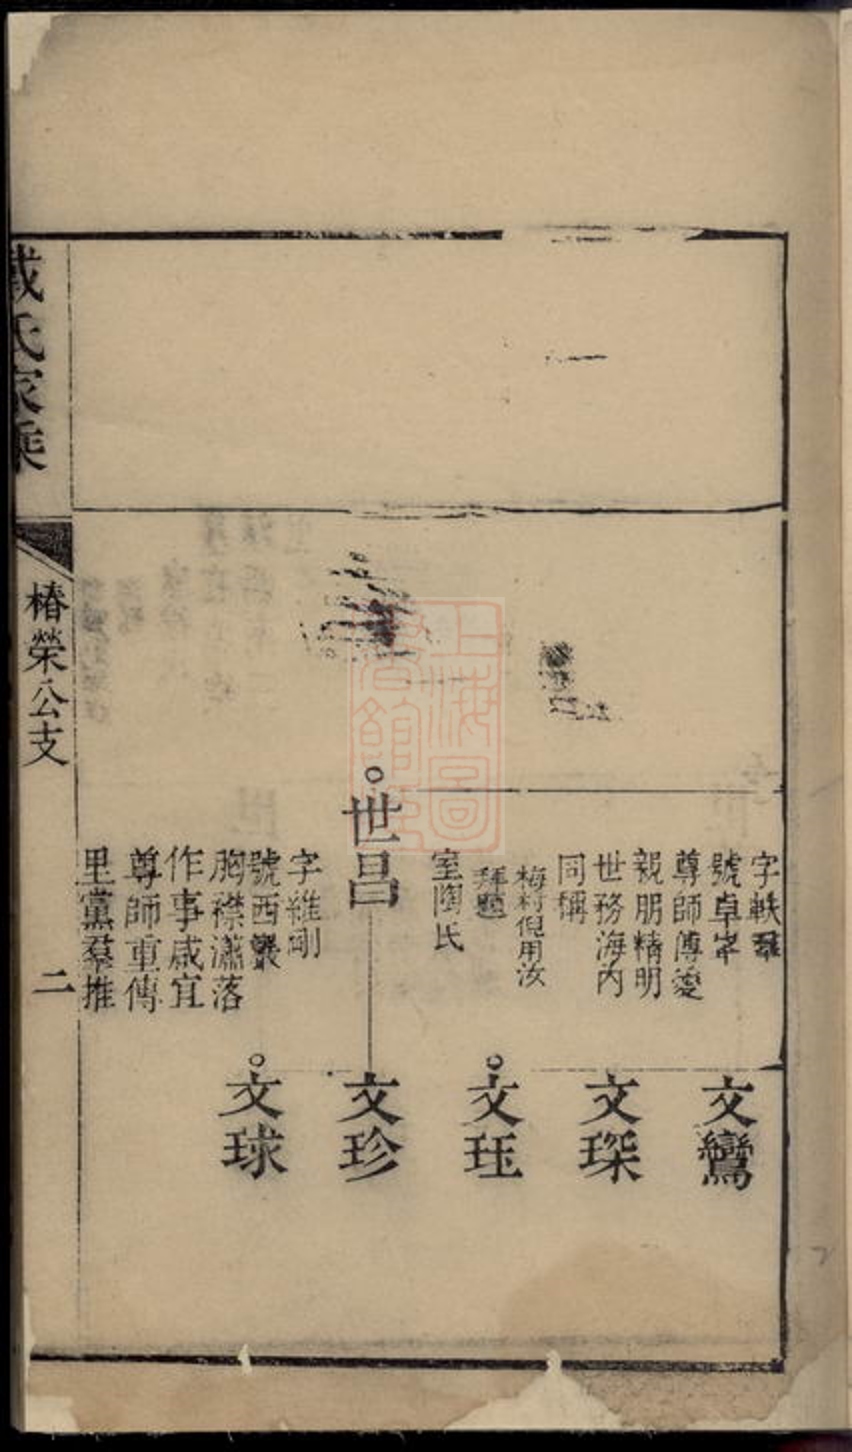 字軼羣
號卓峯
尊師傅愛
親朋精明
世務海內
同稱
梅村倪用汝
拜題
室陶氏
文鸞
文琛
文珏
世昌
字維剛
號西巖
胸襟瀟落
作事咸宜
尊師重傳
里黨羣推
文珍
文球
戴氏家乘
椿榮公支
二
上海圖書館藏